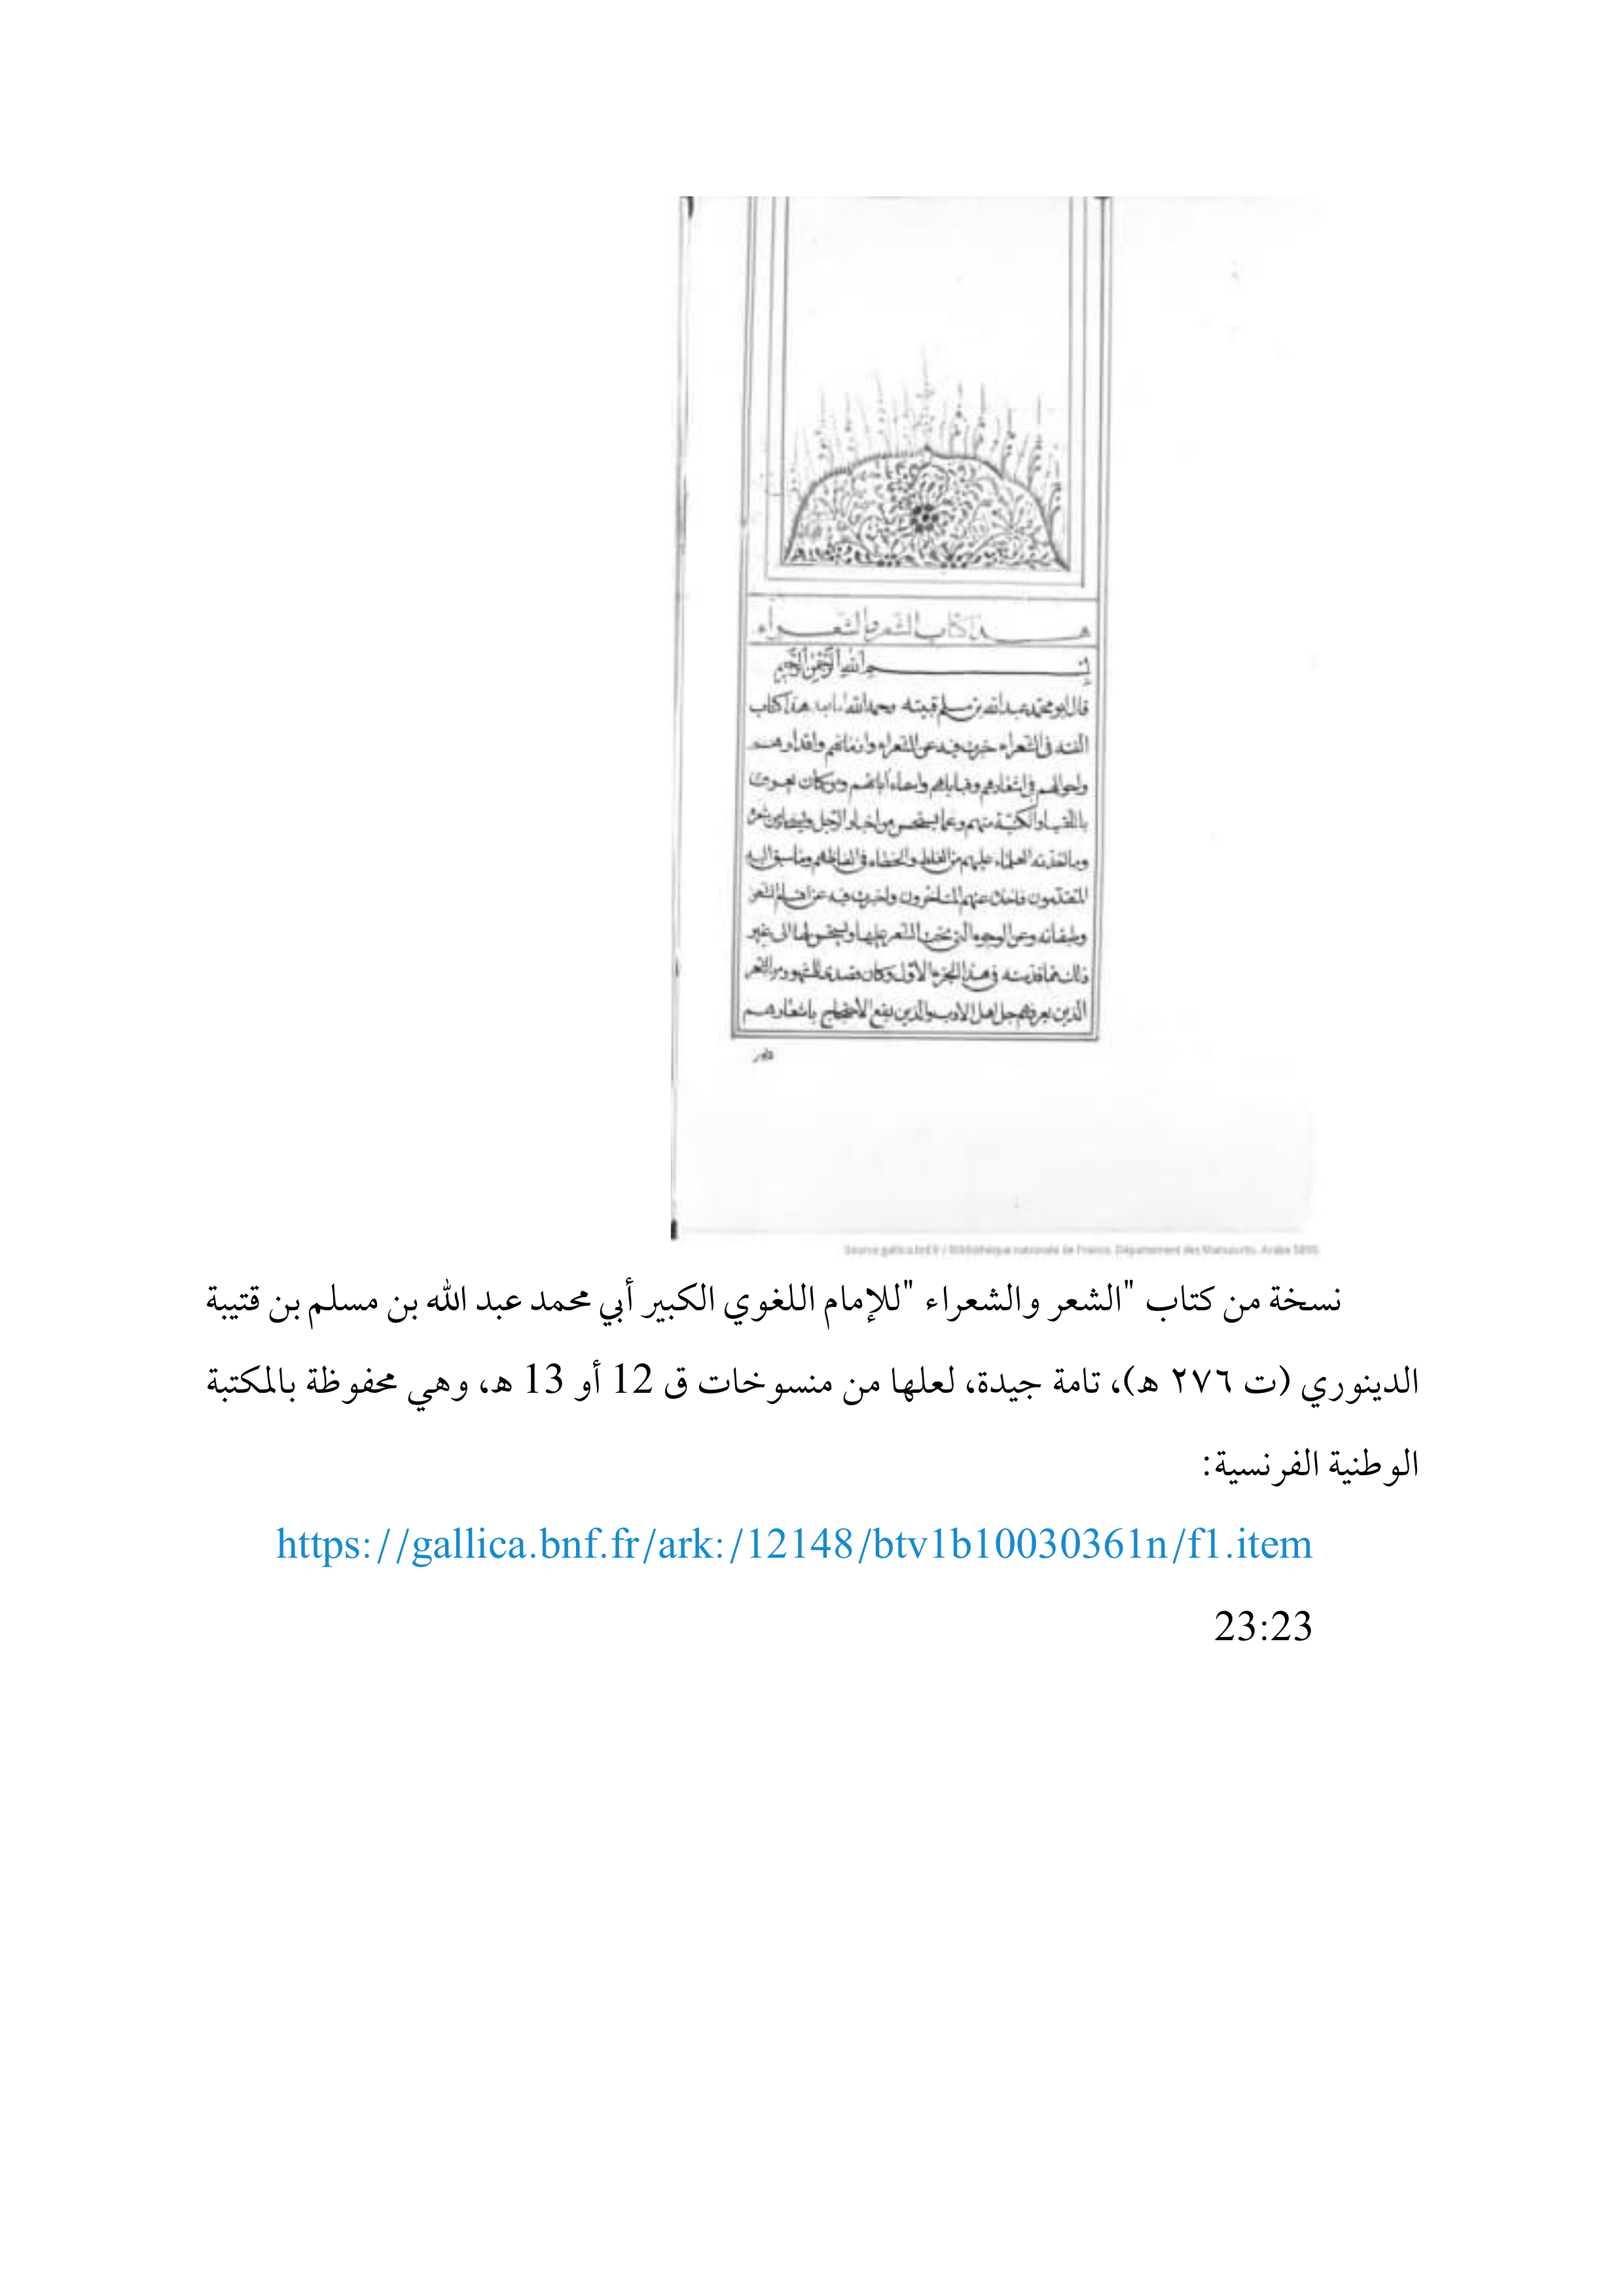 هذا كتاب الشعر والشعراء
بسم الله الرحمن الرحيم
قال ابو محمد عبد الله بن مسلم قتيبه رحمه الله هذا كتاب
الفته فى الشعراء خبرت فيه عن الشعراء وازمانهم واقدارهم
واحوالهم فى اشعارهم وقبايلهم واسماء آبائهم ومن كان يعرف
باللقب او الكنية منهم وعما يستحسن من اخبار الرجل
العلماء عليهم من الغلط والخطاء فى الفاظهم وما سبق اليه
المتقدمون فاخذ عنهم المتاخرون واخبرت فيه عن اقسام الشعر
وطبقاته وعن الوجوه التى يختار الشعر عليها ويستحسن لها الى غير
ذلك مما قدمته فى هذا الجزء الاول وكان قصدى للمشهورين من الشعر
الذين يعرفهم جل اهل الادب والذين يقع الاحتجاج باشعارهم
Source gallica.bnf.fr / Bibliothèque nationale de France. Département des Manuscrits. Arabe
نسخة من كتاب "الشعر والشعراء "للإمام اللغوي الكبير أبي محمد عبد الله بن مسلم بن قتيبة
الدينوري (ت ٢٧٦ ه)، تامة جيدة، لعلها من منسوخات ق 12 أو 13 ه، وهي محفوظة بالمكتبة
الوطنية الفرنسية:
https://gallica.bnf.fr/ark:/12148/btv1b10030361n/f1.item
23:23